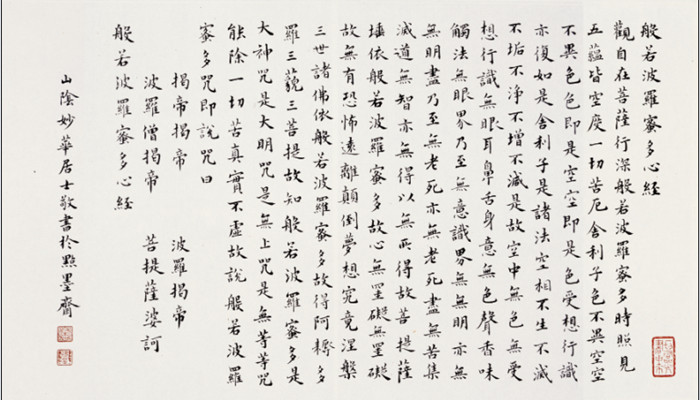 般若波羅蜜多心經
觀自在菩薩行深般若波羅蜜多時照見
五蘊皆空度一切苦厄舍利子色不異空空
不異色色即是空空即是色受想行識
亦復如是舍利子是諸法空相不生不滅
不垢不淨不增不減是故空中無色無受
想行識無眼耳鼻舌身意無色聲香味
觸法無眼界乃至無意識界無無明亦無
無明盡乃至無老死亦無老死盡無苦集
滅道無智亦無得以無所得故菩提薩
埵依般若波羅蜜多故心無罣礙無罣礙
故無有恐怖遠離顛倒夢想究竟涅槃
三世諸佛依般若波羅蜜多故得阿耨多
羅三藐三菩提故知般若波羅蜜多是
大神咒是大明咒是無上咒是無等等咒
能除一切苦真實不虛故說般若波羅
蜜多咒即說咒曰
揭帝揭帝 波羅揭帝
波羅僧揭帝 菩提薩婆訶
般若波羅蜜多心經
山陰妙華居士敬書於點墨齋